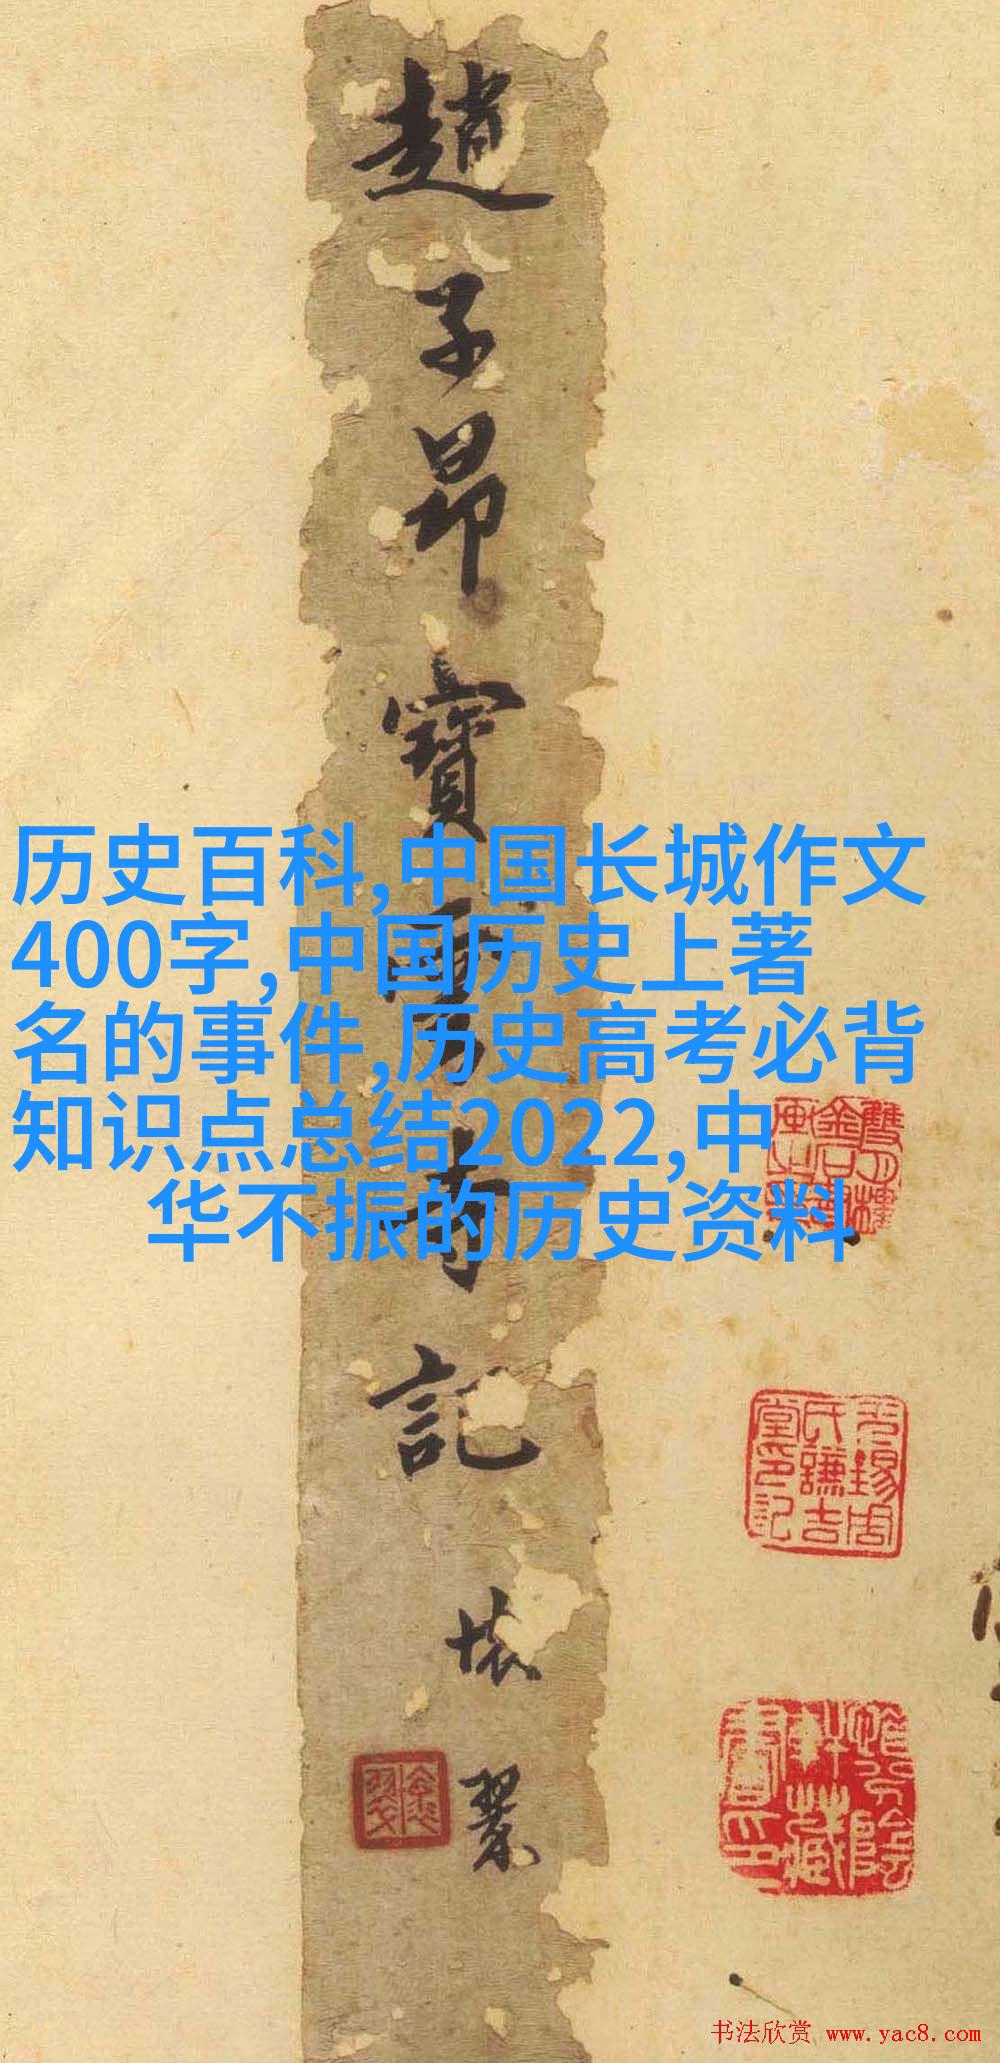 趙子昂寶雲寺記
历史百科,中国长城作文
400字,中国历史上著
名的事件,历史高考必背
知识点总结2022,中
华不振的历史资料
无锡周
氏謙吉
堂印記
书法欣赏 www.yac8.com